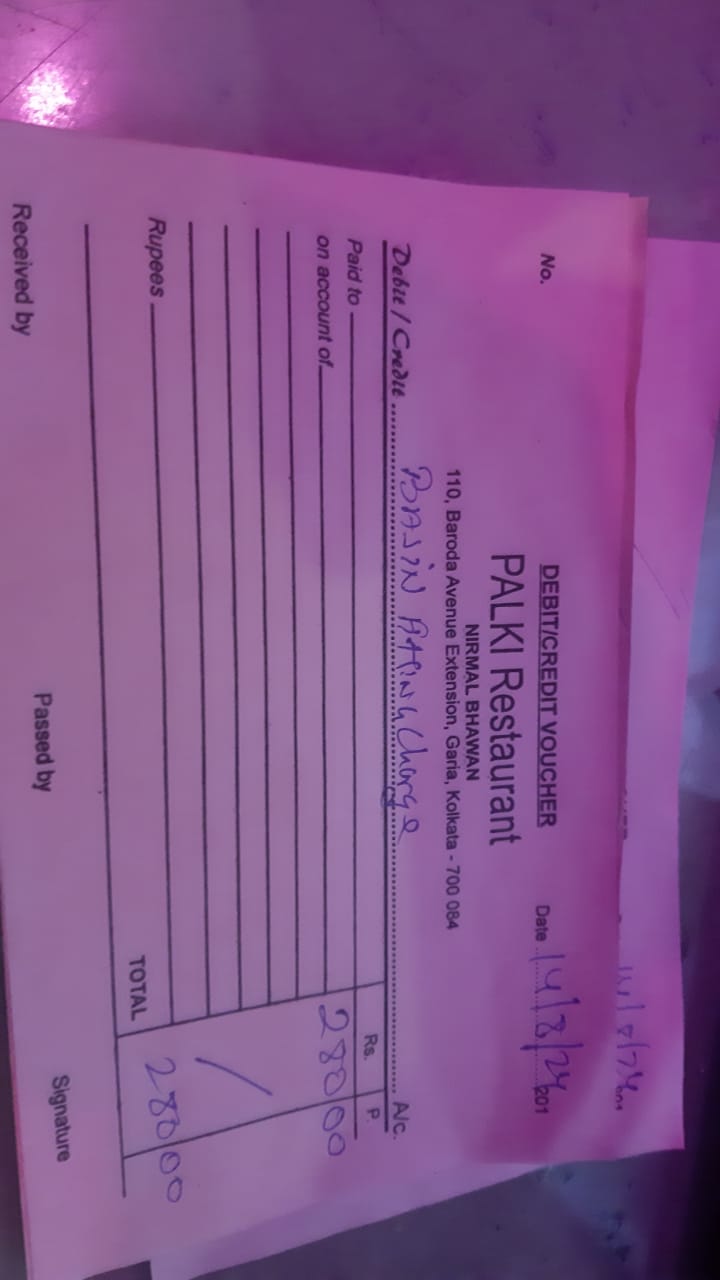 14/8/24
No. DEBIT/CREDIT VOUCHER Date 14/8/24 201
PALKI Restaurant
NIRMAL BHAWAN
110, Baroda Avenue Extension, Garia, Kolkata - 700 084
Debit / Credit BASIN Charge A/c.
Paid to Rs. P.
on account of 280 00
Rupees
TOTAL 280 00
Received by Passed by Signature